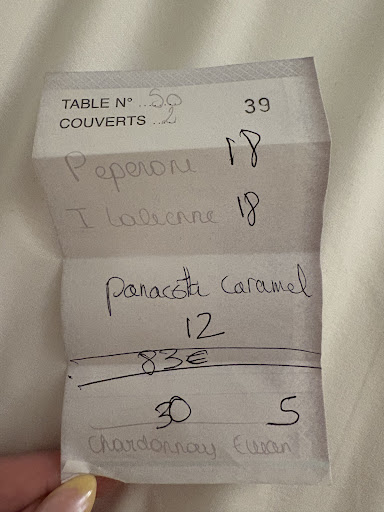 TABLE N° ...50
39
COUVERTS ...2
Peperoni 18
Italienne 18
panacotta caramel
12
83€
30 5
Chardonnay Evian